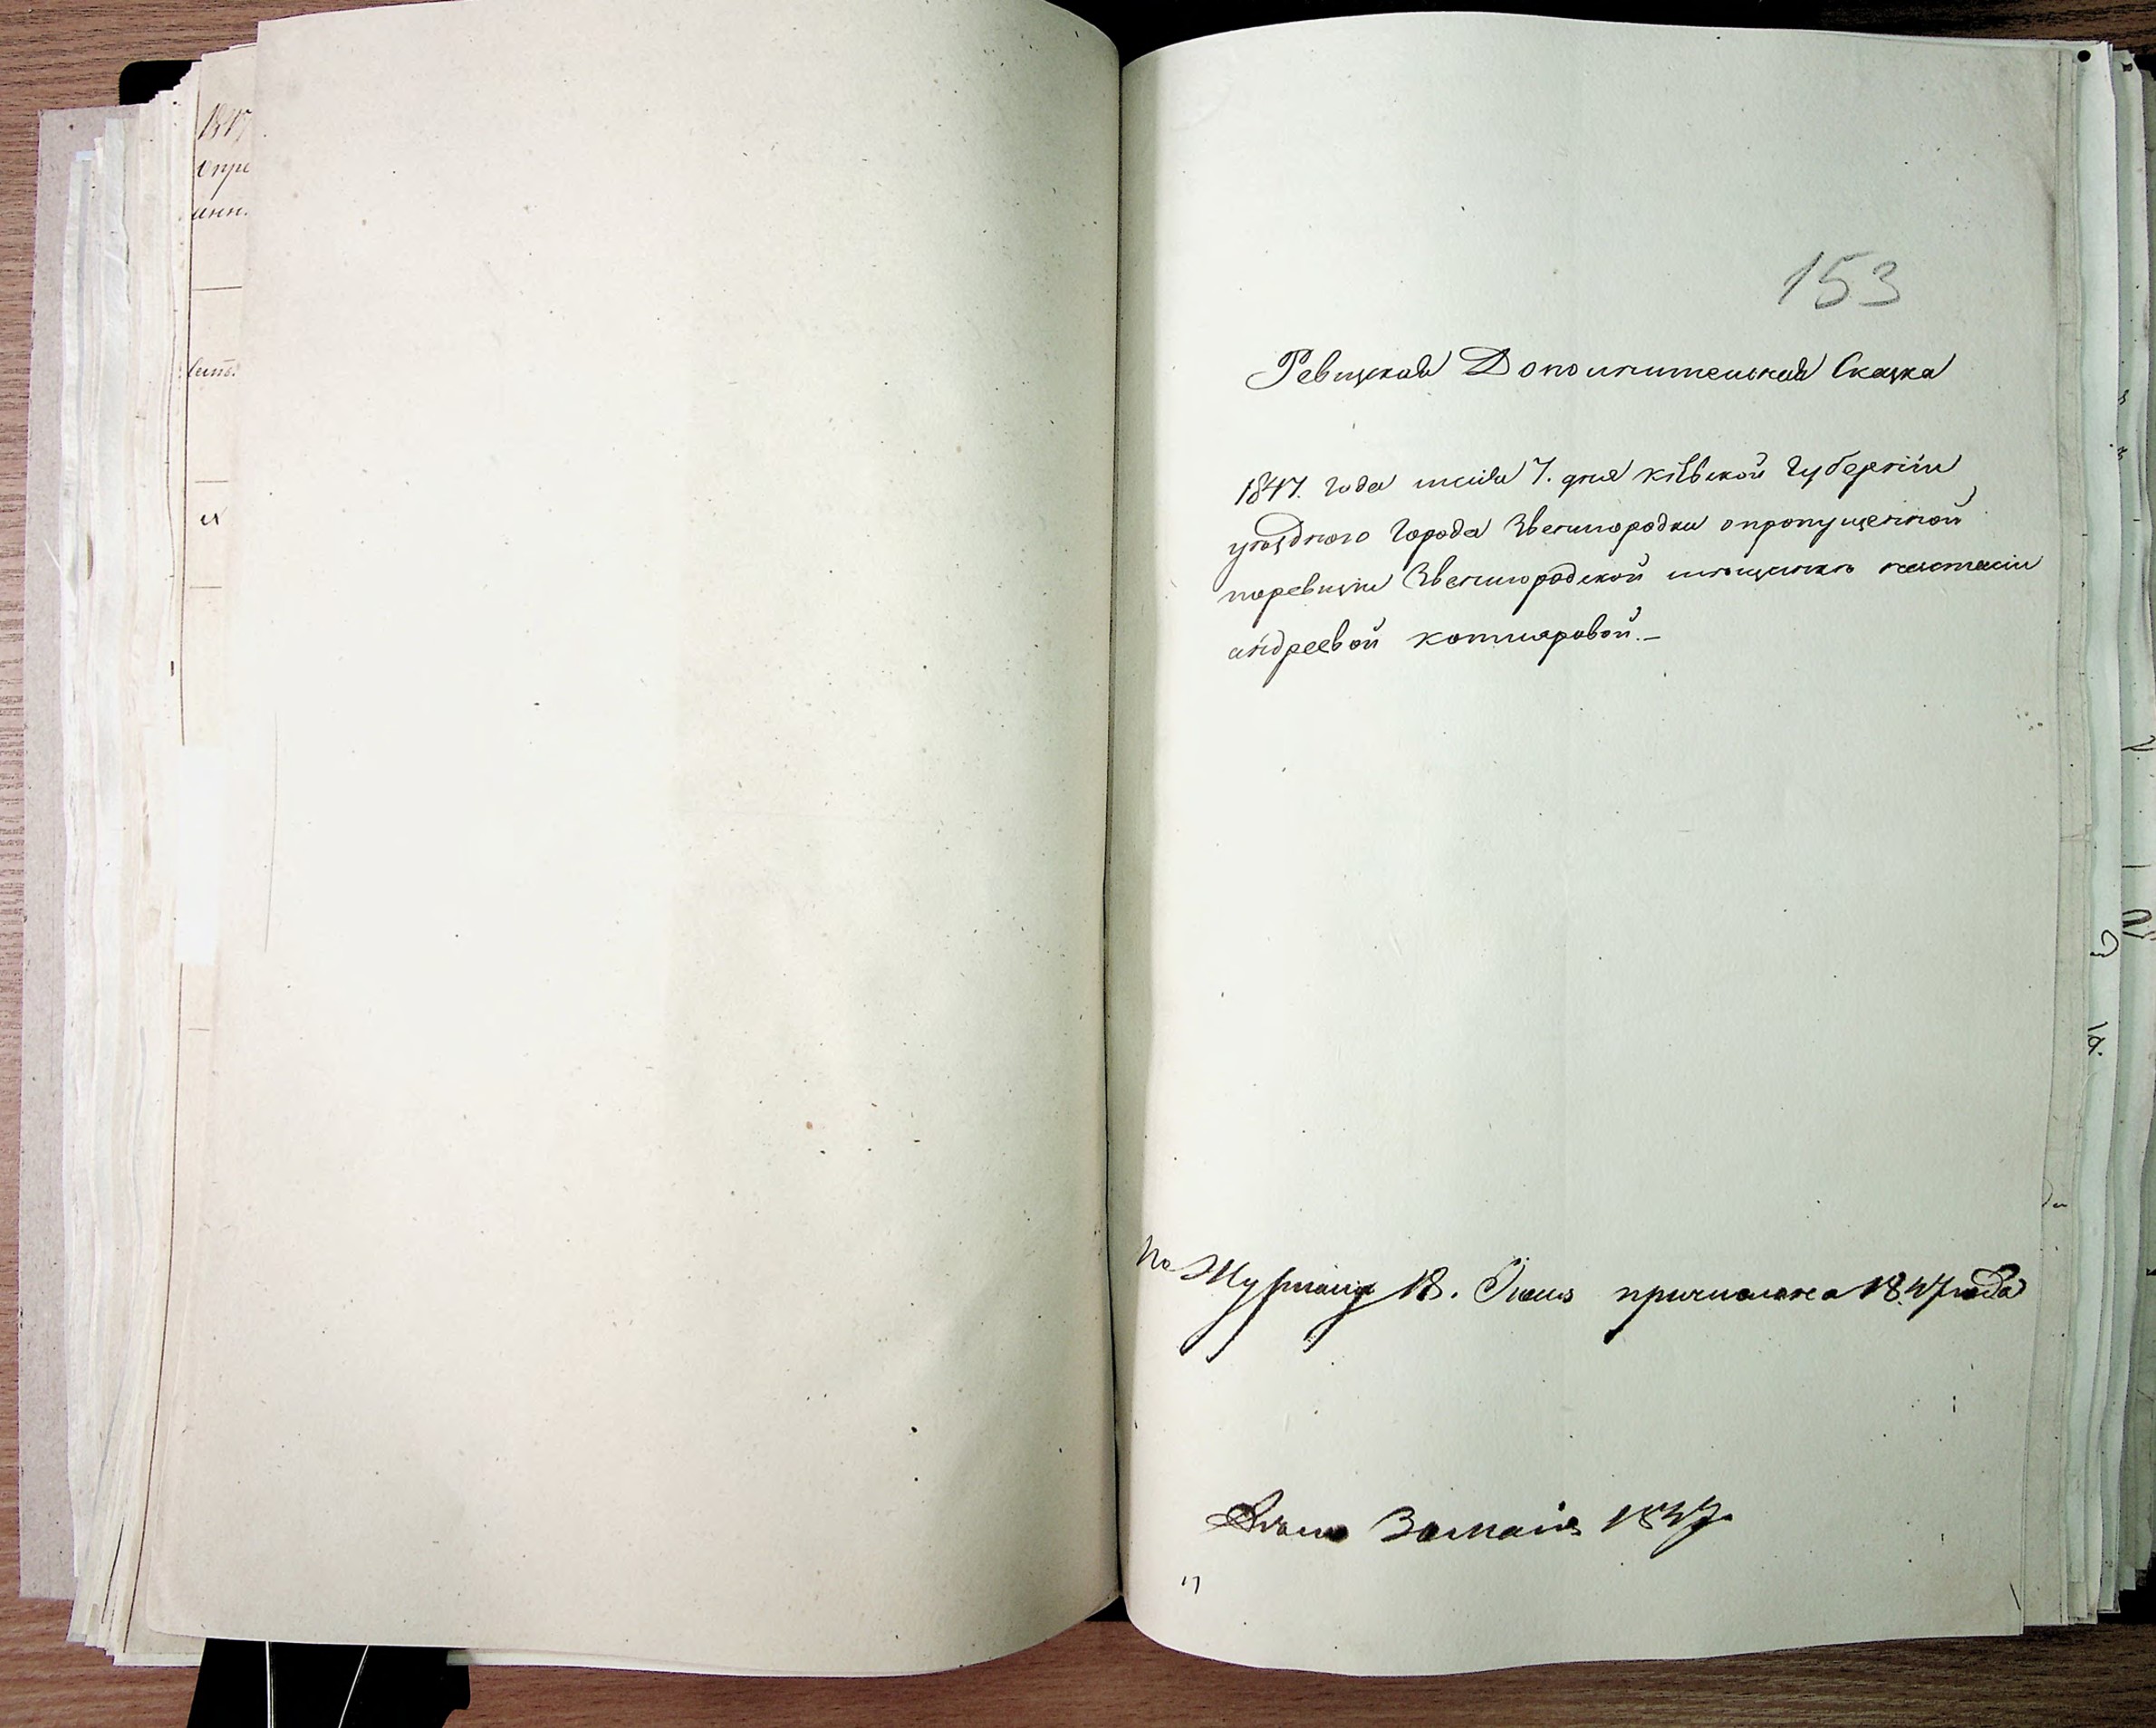 1847
опре
анн.
153
Ревизская Дополнительная Сказка
1847. года маія 7. дня кіевской Губерніи
уѣзднаго Города Звенигородки опропущенной
поревизіи Звенигородской мѣщанкѣ настасіи
андреевой котляровой. —
По Журналу 18. Іюля причислена 1847 года
маія 1847